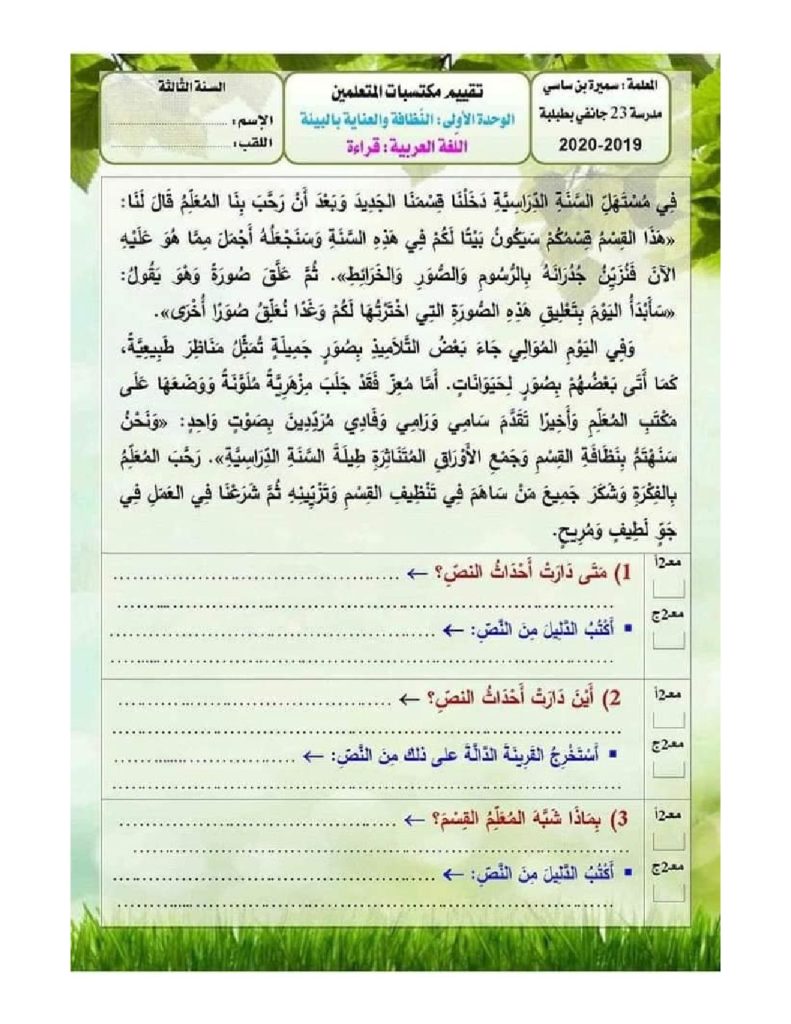 المعلمة : سميرة بن ساسي
مدرسة 23 جانفي بطبلبة
2020-2019
تقييم مكتسبات المتعلمين
الوحدة الأولى : النّظافة والعناية بالبيئة
اللّغة العربية : قراءة
السنة الثالثة
الإسم : ........................
اللقب : ........................
فِي مُسْتَهَلِّ السَّنَةِ الدِّرَاسِيَّةِ دَخَلْنَا قِسْمَنَا الجَدِيدَ وَبَعْدَ أَنْ رَحَّبَ بِنَا المُعَلِّمُ قَالَ لَنَا:
«هَذَا القِسْمُ قِسْمُكُمْ سَيَكُونُ بَيْتًا لَكُمْ فِي هَذِهِ السَّنَةِ وَسَنَجْعَلُهُ أَجْمَلَ مِمَّا هُوَ عَلَيْهِ
الآنَ فَنُزَيِّنُ جُدْرَانَهُ بِالرُّسُومِ وَالصُّوَرِ وَالخَرَائِطِ». ثُمَّ عَلَّقَ صُورَةً وَهْوَ يَقُولُ:
«سَأَبْدَأُ اليَوْمَ بِتَعْلِيقِ هَذِهِ الصُّورَةِ التِي اخْتَرْتُهَا لَكُمْ وَغَدًا نُعَلِّقُ صُوَرًا أُخْرَى».
وَفِي اليَوْمِ المُوَالِي جَاءَ بَعْضُ التَّلَامِيذِ بِصُوَرٍ جَمِيلَةٍ تُمَثِّلُ مَنَاظِرَ طَبِيعِيَّةً،
كَمَا أَتَى بَعْضُهُمْ بِصُوَرٍ لِحَيَوَانَاتٍ. أَمَّا مُعِزّ فَقَدْ جَلَبَ مِزْهَرِيَّةً مُلَوَّنَةً وَوَضَعَهَا عَلَى
مَكْتَبِ المُعَلِّمِ وَأَخِيرًا تَقَدَّمَ سَامِي وَرَامِي وَفَادِي مُرَدِّدِينَ بِصَوْتٍ وَاحِدٍ: «وَنَحْنُ
سَنَهْتَمُّ بِنَظَافَةِ القِسْمِ وَجَمْعِ الأَوْرَاقِ المُتَنَاثِرَةِ طِيلَةَ السَّنَةِ الدِّرَاسِيَّةِ». رَحَّبَ المُعَلِّمُ
بِالفِكْرَةِ وَشَكَرَ جَمِيعَ مَنْ سَاهَمَ فِي تَنْظِيفِ القِسْمِ وَتَزْيِينِهِ ثُمَّ شَرَعْنَا فِي العَمَلِ فِي
جَوٍّ لَطِيفٍ وَمُرِيحٍ.
مع2أ
1) مَتَى دَارَتْ أَحْدَاثُ النصِّ؟ ← ........................
................................................
مع2ج
▪ أَكْتُبُ الدَّلِيلَ مِنَ النَّصِّ: ← ........................
................................................
مع2أ
2) أَيْنَ دَارَتْ أَحْدَاثُ النصِّ؟ ← ........................
................................................
مع2ج
▪ أَسْتَخْرِجُ القَرِينَةَ الدَّالَّةَ على ذلك مِنَ النَّصِّ: ← ........................
................................................
مع2أ
3) بِمَاذَا شَبَّهَ المُعَلِّمُ القِسْمَ؟ ← ........................
................................................
مع2ج
▪ أَكْتُبُ الدَّلِيلَ مِنَ النَّصِّ: ← ........................
................................................